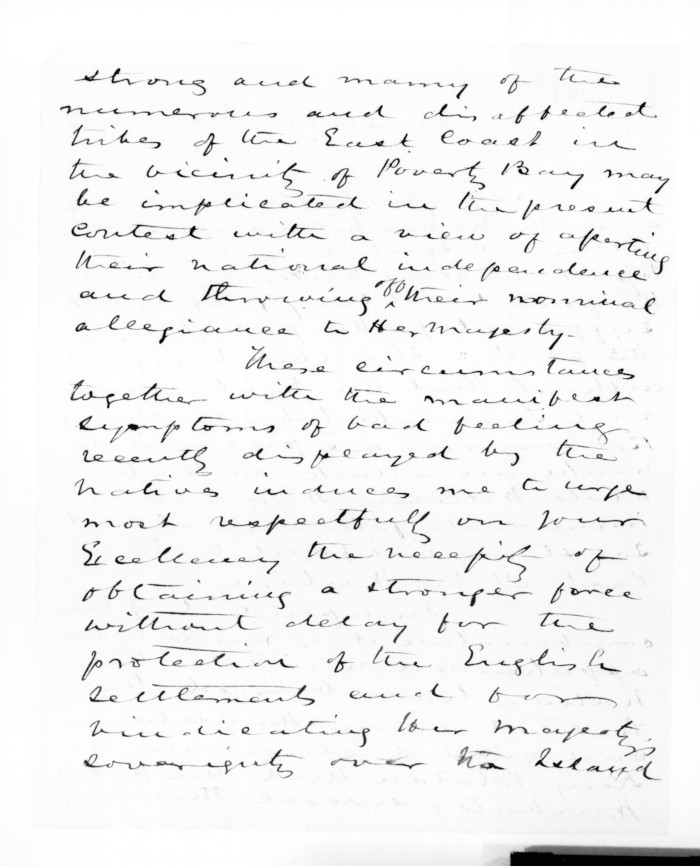 strong and many of the
numerous and disaffected
tribes of the East Coast in
the vicinity of Poverty Bay may
be implicated in the present
contest with a view of asserting
their national independence
and throwing off their nominal
allegiance to Her Majesty.
These circumstances
together with the manifest
symptoms of bad feeling
recently displayed by the
Natives induces me to urge
most respectfully on your
Excellency the necessity of
obtaining a stronger force
without delay for the
protection of the English
settlements and for
vindicating Her Majesty's
soverignty over the Island